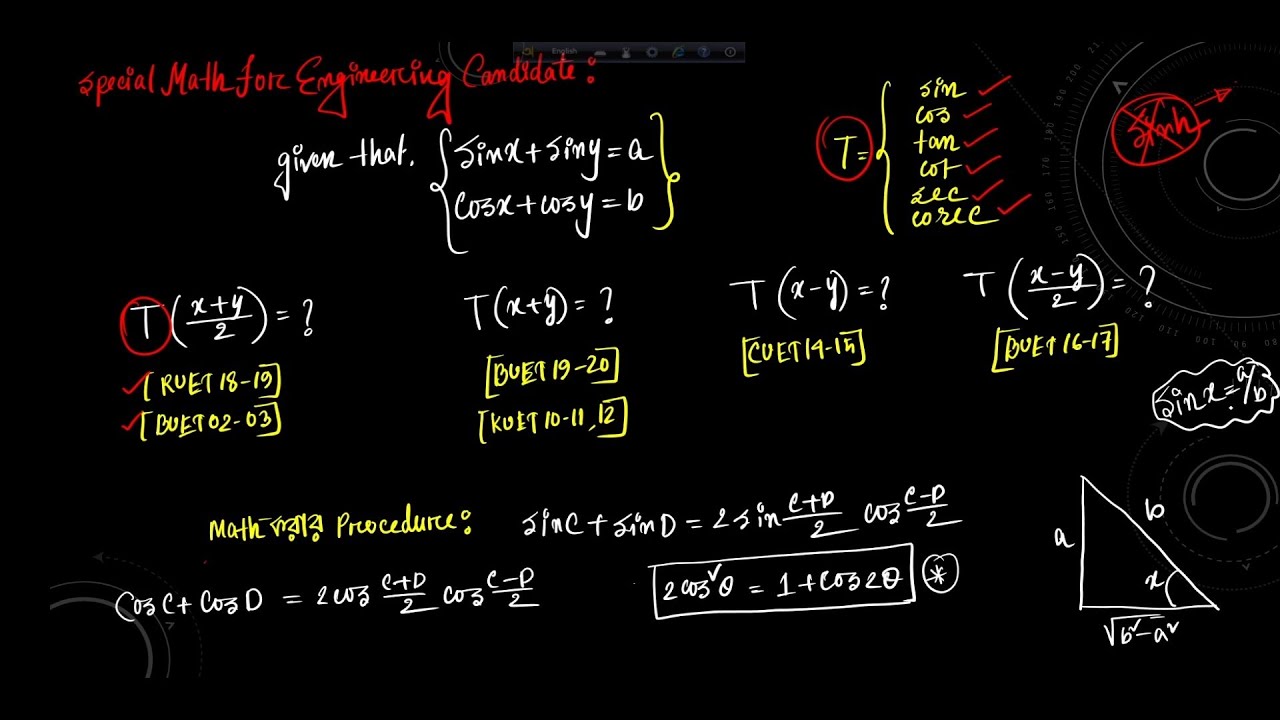 English
Special Math for Engineering Candidate:
given that, { sinx + siny = a
cosx + cosy = b }
T = { sin ✓
cos ✓
tan ✓
cot ✓
sec ✓
cosec ✓
sinh
T((x+y)/2) = ?
✓ [RUET 18-19]
✓ [BUET 02-03]
T(x+y) = ?
[BUET 19-20]
[KUET 10-11, 12]
T(x-y) = ?
[CUET 14-15]
T((x-y)/2) = ?
[BUET 16-17]
sinx = a/b
Math করার Procedure:
sinC + sinD = 2 sin (C+D)/2 cos (C-D)/2
CosC + CosD = 2cos (C+D)/2 cos (C-D)/2
2cos²θ = 1 + cos2θ *
a
b
x
√(b²-a²)